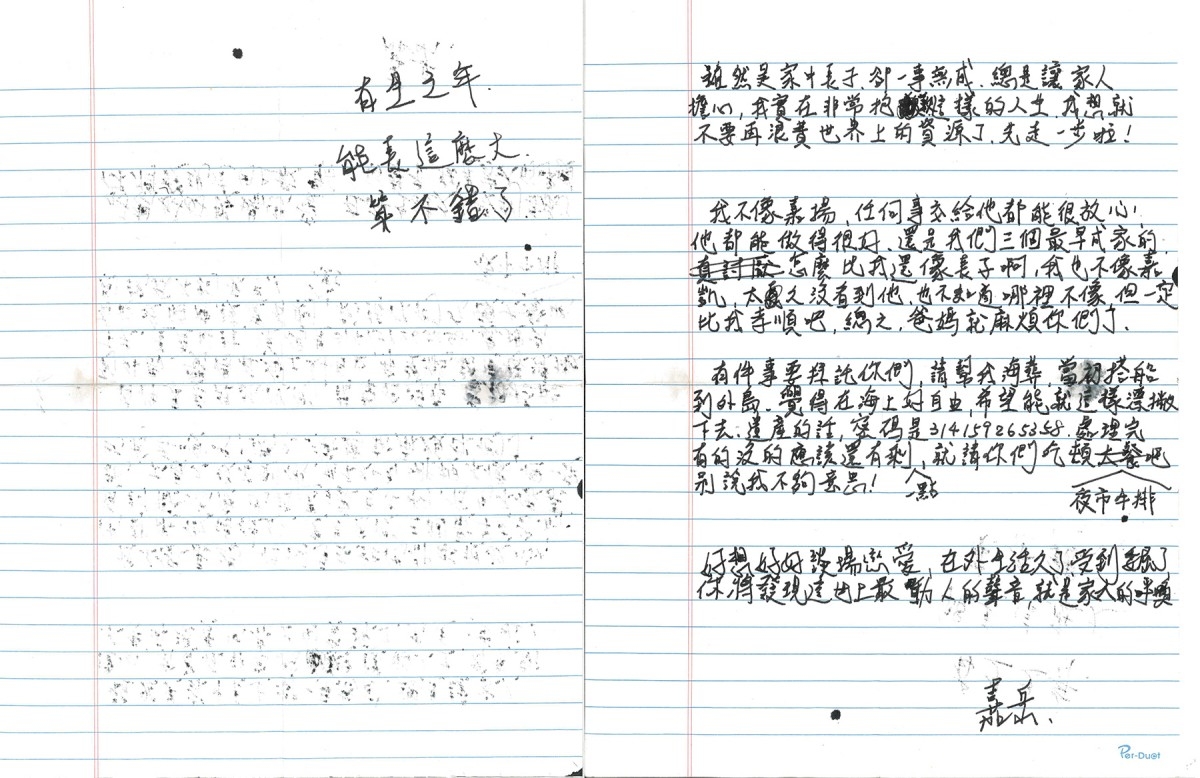 有生之年.
能長這麼大.
算不錯了.
雖然是家中長子,卻一事無成.總是讓家人
擔心,我實在非常抱歉這樣的人生.我想就
不要再浪費世界上的資源了.先走一步啦!
我不像嘉揚,任何事交給他都能很放心!
他都能做得很好.還是我們三個最早成家的
真討厭 怎麼比我還像長子啊,我也不像嘉
凱,太久沒看到他,也不知道哪裡不像,但一定
比我孝順吧,總之,爸媽就麻煩你們了.
有件事要拜託你們,請幫我海葬,當初搭船
到外島.覺得在海上好自由,希望能就這樣漂撇
下去.遺產的話,密碼是314159265358.處理完
有的沒的應該還有剩,就請你們吃頓大餐吧
別說我不夠意思!
一點
夜市牛排
好想好好談場戀愛,在外生活久了.受到委屈了
你將發現這世上最動人的聲音,就是家人的呼喚
嘉岳.
Per-Duet